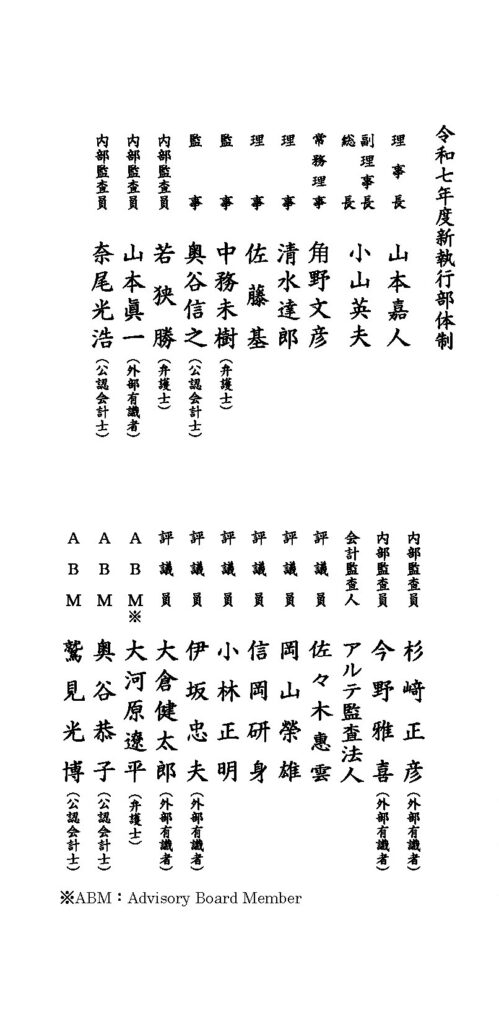 令和七年度新執行部体制
理事長 山本嘉人
副理事長
総長 小山英夫
常務理事 角野文彦
理事 清水達郎
理事 佐藤基
監事 中務未樹（弁護士）
監事 奥谷信之（公認会計士）
内部監査員 若狭勝（弁護士）
内部監査員 山本眞一（外部有識者）
内部監査員 奈尾光浩（公認会計士）
内部監査員 杉﨑正彦（外部有識者）
内部監査員 今野雅喜（外部有識者）
会計監査人 アルテ監査法人
評議員 佐々木惠雲
評議員 岡山榮雄
評議員 信岡研身
評議員 小林正明
評議員 伊坂忠夫（外部有識者）
評議員 大倉健太郎（外部有識者）
ABM※ 大河原遼平（弁護士）
ABM 奥谷恭子（公認会計士）
ABM 鷲見光博（公認会計士）
※ABM：Advisory Board Member